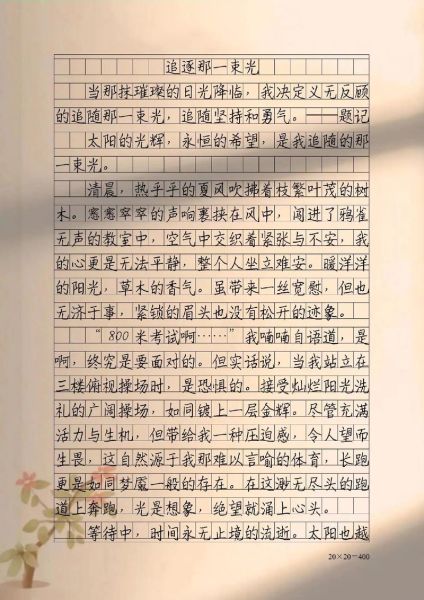 追逐那一束光
当那抹璀璨的日光降临，我决定义无反顾
的追随那一束光，追随坚持和勇气。——题记
太阳的光辉，永恒的希望，是我追随的那
一束光。
清晨，热乎乎的夏风吹拂着枝繁叶茂的树
木。窸窸窣窣的声响裹挟在风中，闯进了鸦雀
无声的教室中，空气中交织着紧张与不安，我
的心更是无法平静，整个人坐立难安。暖洋洋
的阳光，草木的香气。虽带来一丝宽慰，但也
无济于事，紧锁的眉头也没有松开的迹象。
“800米考试啊……”我喃喃自语道，是
啊，终究是要面对的。但实话说，当我站立在
三楼俯视操场时，是恐惧的。接受灿烂阳光洗
礼的广阔操场，如同镀上一层金辉。尽管充满
活力与生机，但带给我一种压迫感，令人望而
生畏，这自然源于我那难以言喻的体育，长跑
更是如同梦魇一般的存在。在这渺无尽头的跑
道上奔跑，光是想象，绝望就涌上心头。
等待中，时间永无止境的流逝。太阳也越
20×20=400